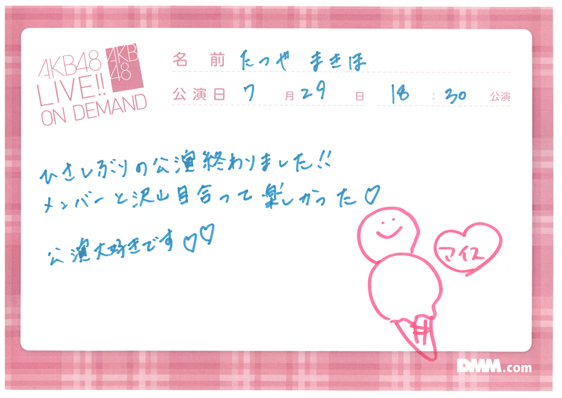 AKB48
LIVE!!
ON DEMAND
AKB
48
名前 たつや まきほ
公演日 7月29日 18:30公演
ひさしぶりの公演終わりました!!
メンバーと沢山目合って楽しかった♡
公演大好きです♡♡
マイス
DMM.com